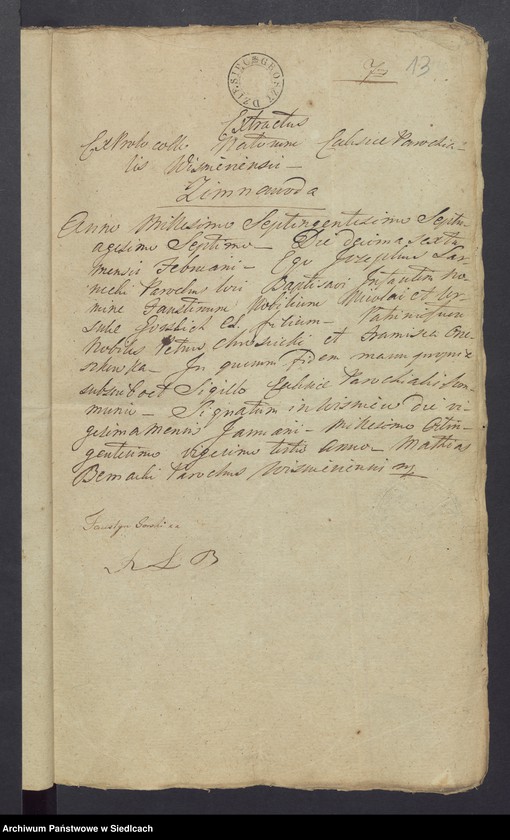 13
DZIESIĘĆ GROSZY
Extractus
Ex Protocollo Natorum Ecclesiae Parochia-
lis Wisniewiensis
Zimnawoda
Anno Millesimo Septingentesimo Septu-
agesimo Septimo – Die decima sexta
mensis Februarii – Ego Josephus
Parochus loci Baptisavi Infantem No-
mine Faustinum Nobilium Nicolai et Ur-
sulae filium – Patrini fuere
Nobilis Petrus Chrościcki et Francisca
– In quorum Fidem manu propria
subscribo et Sigillo Ecclesiae Parochialis com-
munio – Signatum in Wisniew die vi-
gesima mensis Januarii – Millesimo Octin-
gentesimo vigesimo tertio Anno – Mathias
Parochus Wisniewiensis
Archiwum Państwowe w Siedlcach